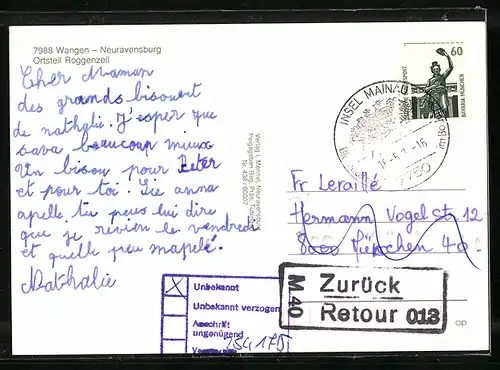 7988 Wangen – Neuravensburg
Ortsteil Roggenzell
Cher Maman
des grands bisouent
de nathalie. J'esper que
sava beaucoup mieux
Un bisou pour Peter
et pour toi. Sie anna
apelle, tu peus lui dire
que je revien le vendredi
et quelle peu mapelé.
Nathalie
Verlag
Nr.
60
DEUTSCHE BUNDESPOST
BAVARIA MÜNCHEN
INSEL MAINAU
IM BODENSEE
7750
Fr Leraillé
Hermann Vogel Str 12
8000 München 40
Zurück
Retour 013
M 40
X Unbekannt
Unbekannt verzogen
Anschrift
ungenügend
op